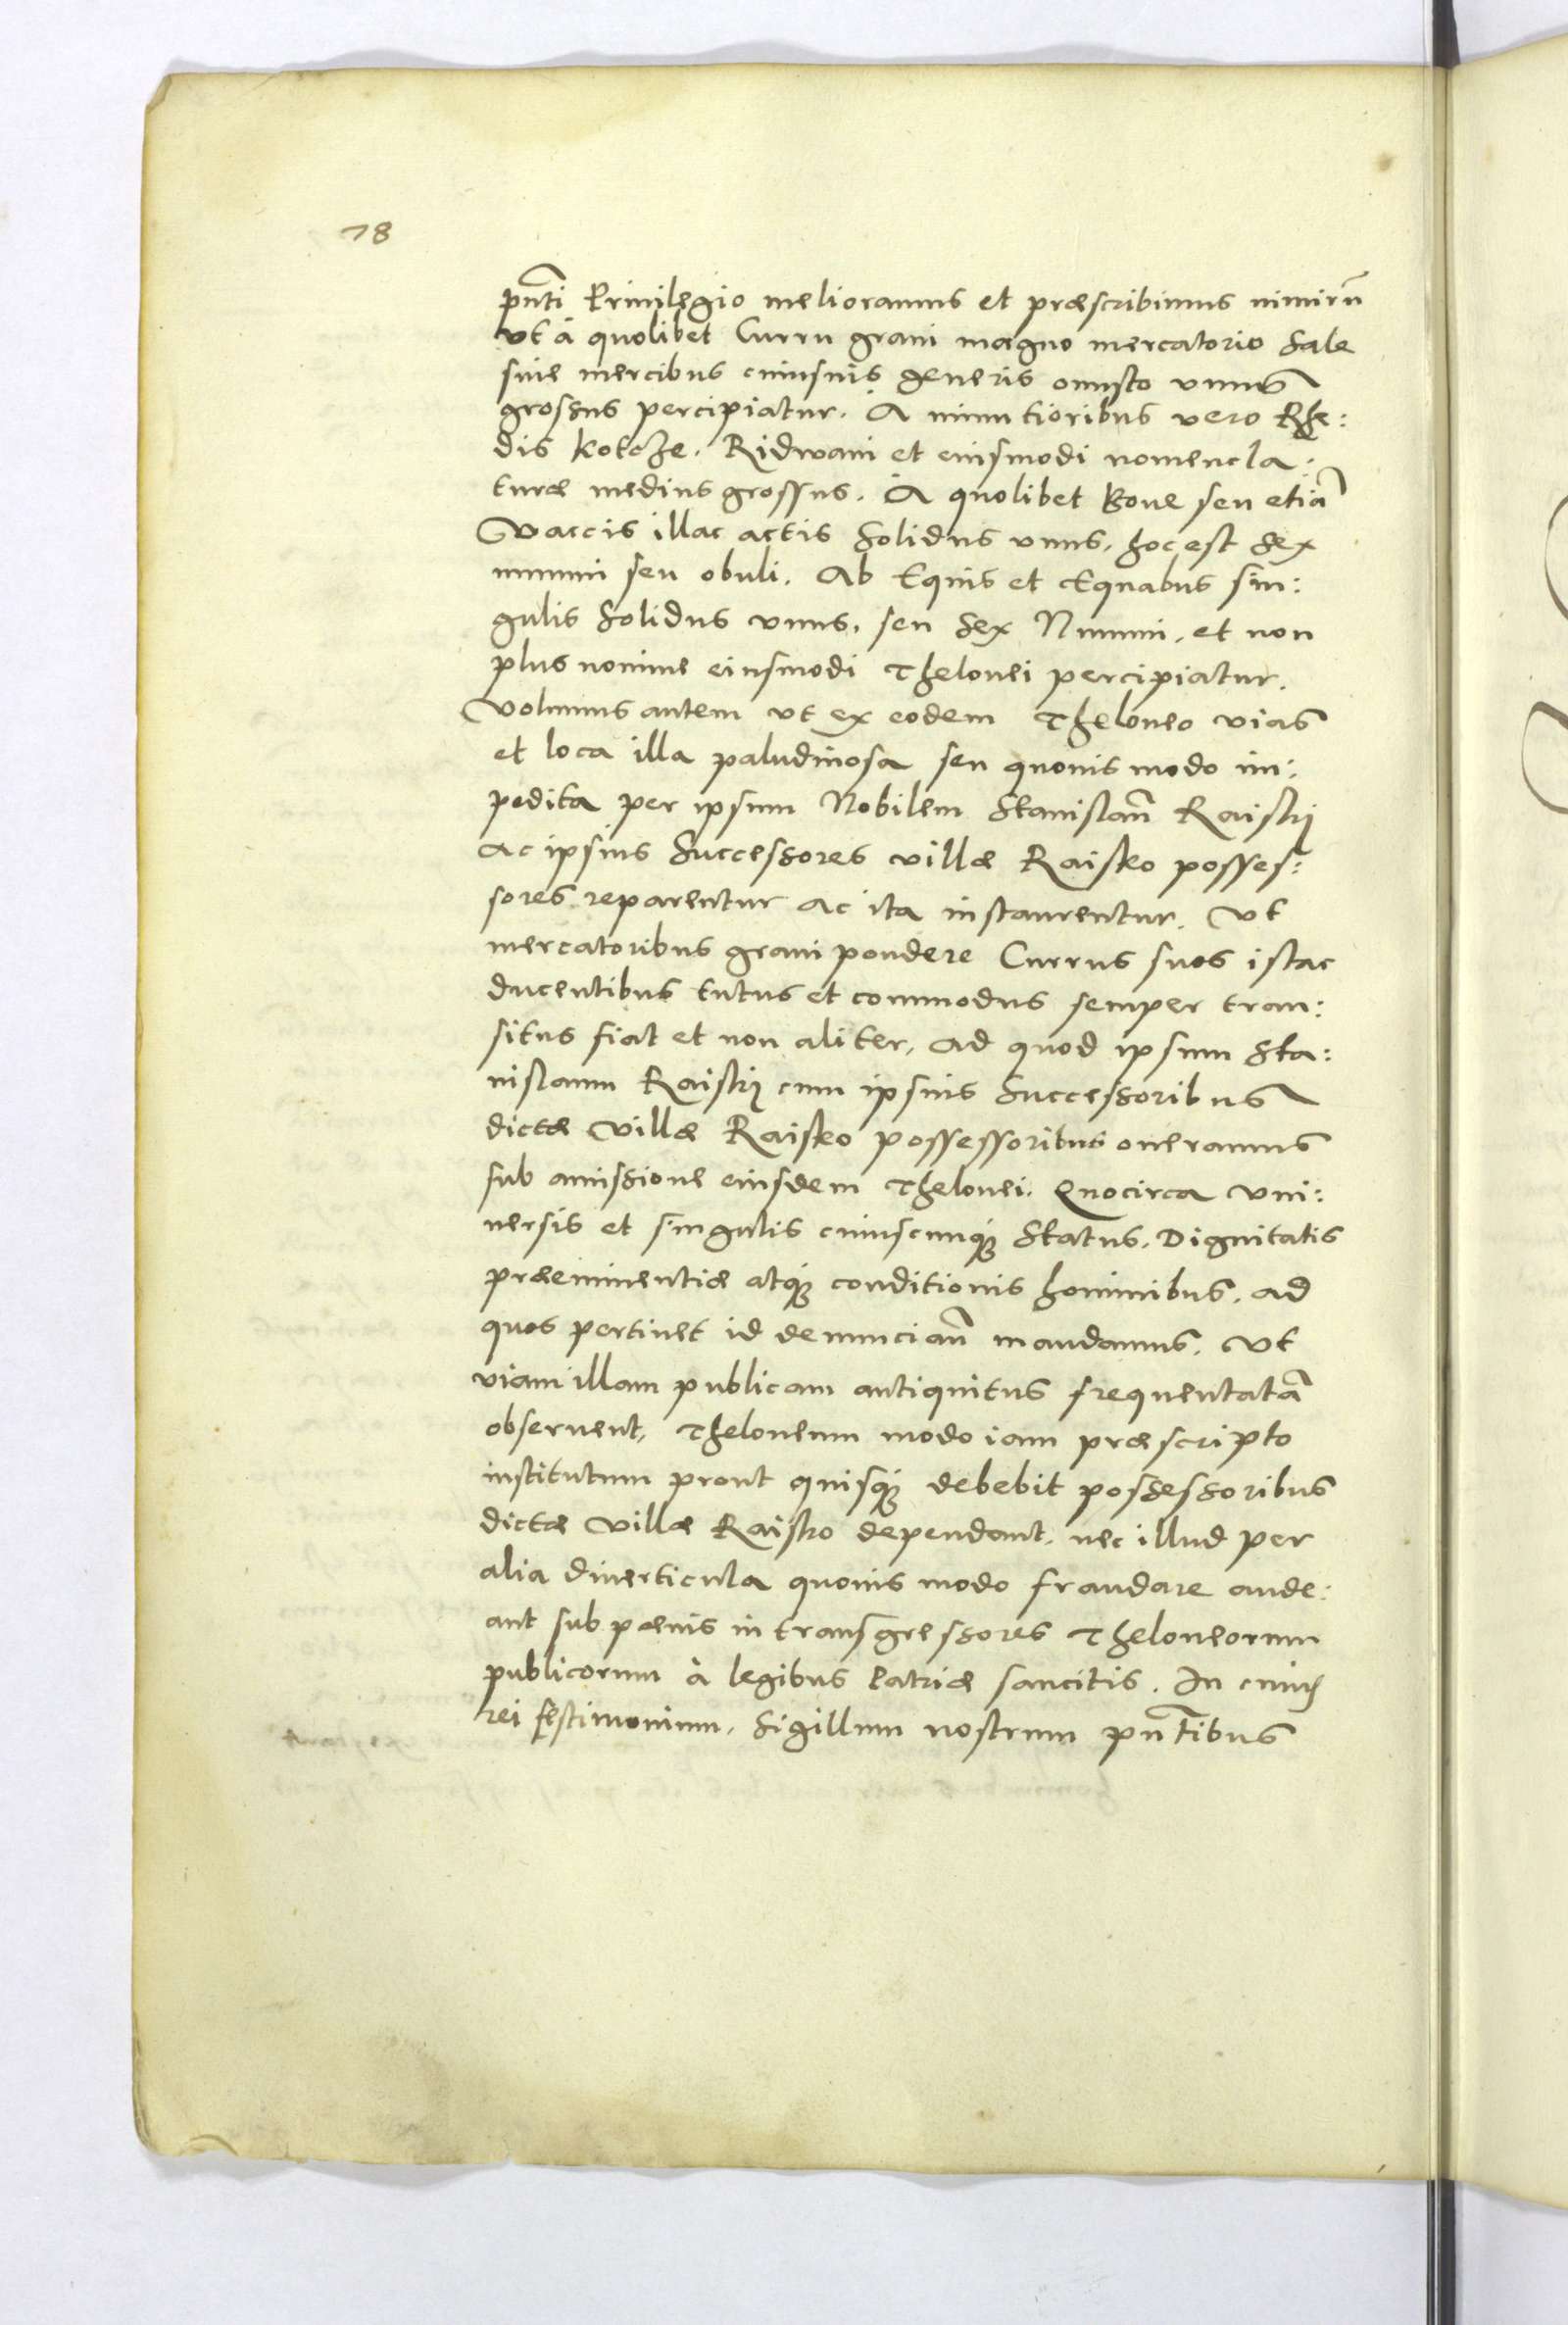 78
pñti Priuilegio melioramus et præscribimus nimirũ
vt à quolibet Curru graui magno mercatorio Sale
siue mercibus cuiusuis generis onusto vnus
grossus percipiatur. A minutioribus vero Rhe:
dis Kotcze. Ridwani et eiusmodi nomencla:
turæ medius grossus. A quolibet Boue seu etiã
Vaccis illac actis Solidus vnus, hoc est Sex
nummi seu obuli. Ab Equis et Equabus sin:
gulis Solidus vnus, seu Sex Nummi, et non
plus nomine eiusmodi Thelonei percipiatur.
Volumus autem vt ex eodem Theloneo vias
et loca illa paludinosa seu quouis modo im:
pedita per ipsum Nobilem Stanislaũ Raiskÿ
Ac ipsius Successores villæ Raisko posses:
sores reparentur Ac ita instaurentur. Vt
mercatoribus graui pondere Currus suos istac
ducentibus tutus et commodus semper tran:
situs fiat et non aliter, Ad quod ipsum Sta:
nislaum Raiskÿ cum ipsius Successoribus
dictæ Villæ Raisko possessoribus oneramus
sub amissione eiusdem Thelonei. Quocirca vni:
uersis et singulis cuiuscunq; Status, Dignitatis
præeminentiæ atq; conditionis hominibus, ad
quos pertinet id denunciañ mandamus. Vt
viam illam publicam antiquitus frequentatã
obseruent, Theloneum modo iam præscripto
institutum prout quisq; debebit possessoribus
dictæ Villæ Raisko dependant. nec illud per
alia diuerticula quouis modo fraudare aude:
ant sub pænis in transgressores Theloneorum
publicorum à legibus Patriæ sancitis. In cuius
rei testimonium, Sigillum nostrum pñtibus